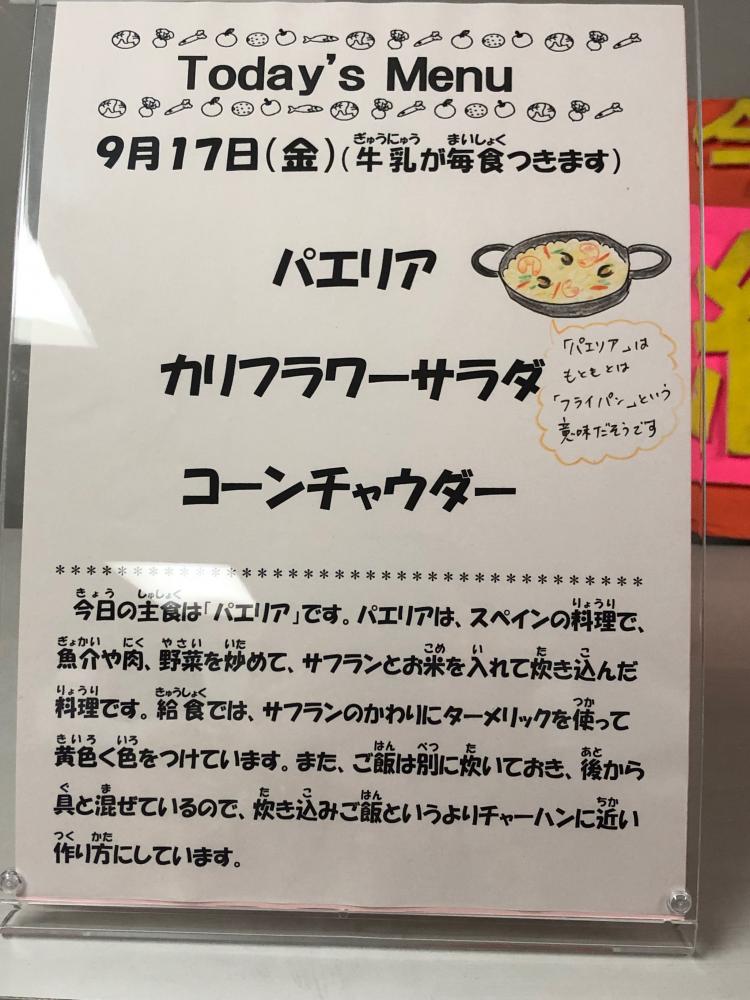 Today's Menu
9月17日(金)(牛乳が毎食つきます)
パエリア
「パエリア」は
もともとは
「フライパン」という
意味だそうです
カリフラワーサラダ
コーンチャウダー
****************************************
今日の主食は「パエリア」です。パエリアは、スペインの料理で、
魚介や肉、野菜を炒めて、サフランとお米を入れて炊き込んだ
料理です。給食では、サフランのかわりにターメリックを使って
黄色く色をつけています。また、ご飯は別に炊いておき、後から
具と混ぜているので、炊き込みご飯というよりチャーハンに近い
作り方にしています。